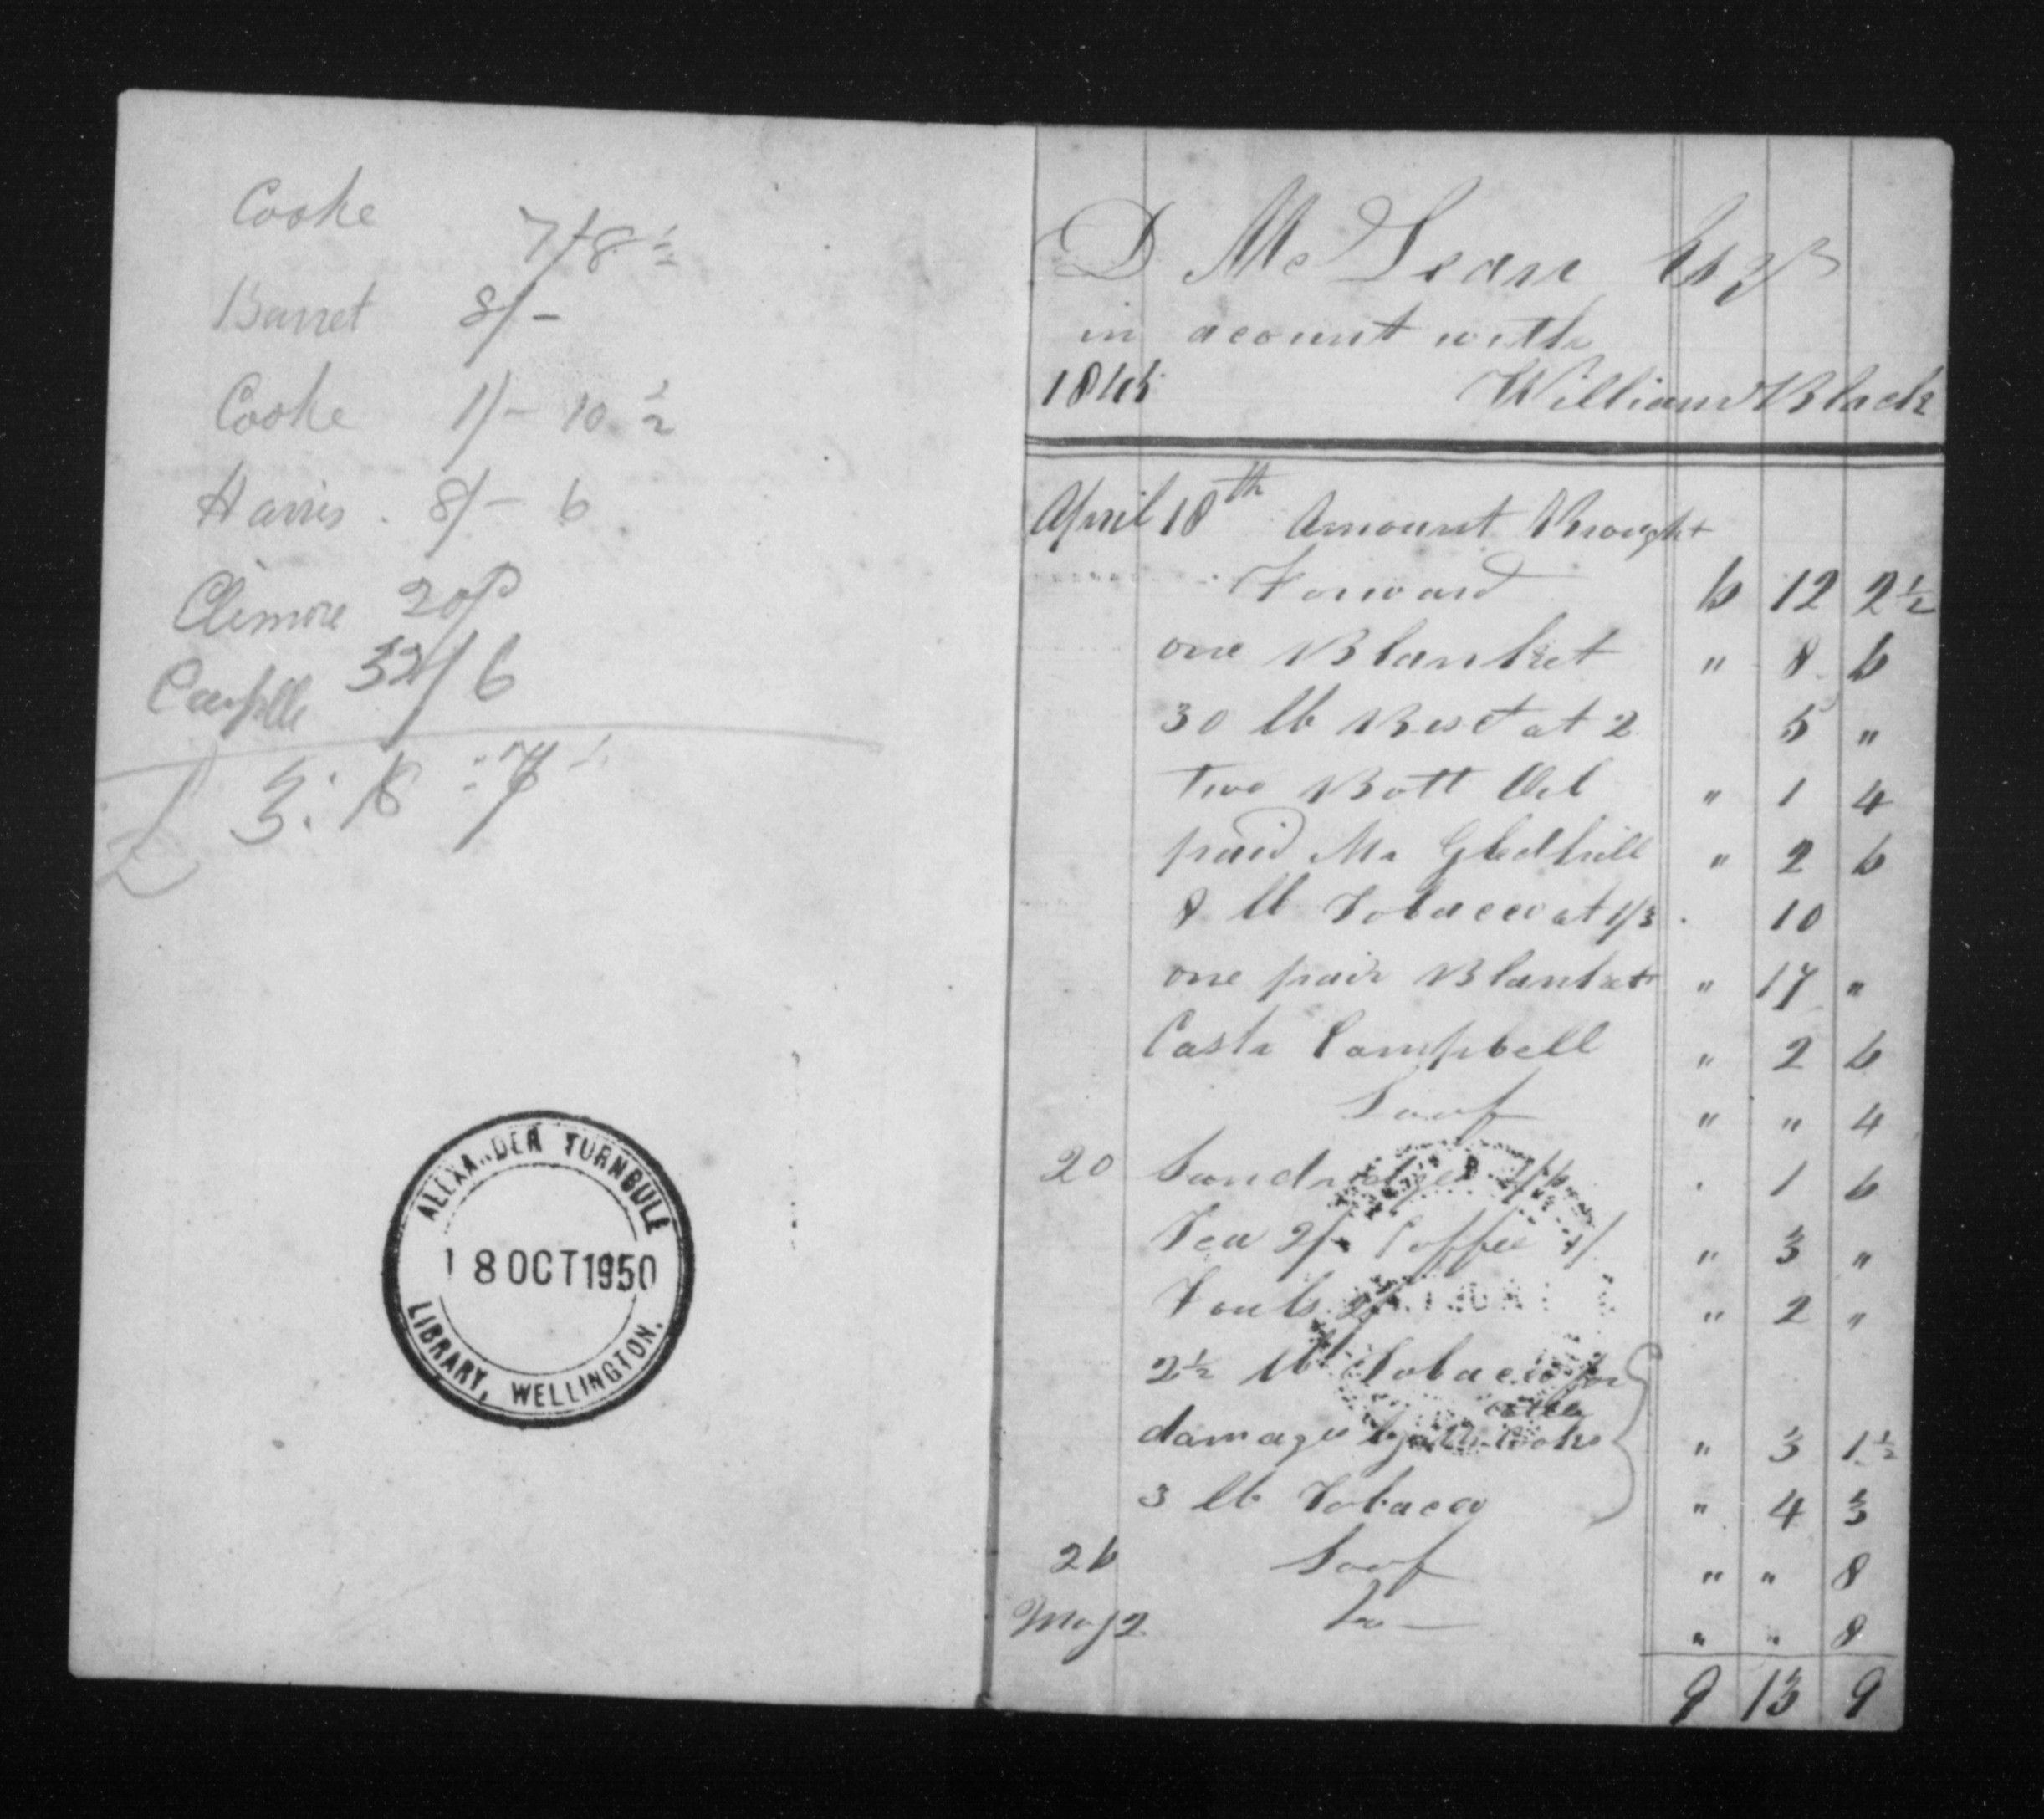 Cooke 7/8 ½
Barret 8/-
Cooke 1/- 10 ½
Harris. 8/- 6
Climore 20/
Campbll 32/6
£ 3: 18 : 7
ALEXANDER TURNBULL
18 OCT 1950
LIBRARY, WELLINGTON.
D McLean Esqr
in acount with
1845 William Black
April 18th Amount Brought
Forward 6 12 2½
one Blanket " 8 6
30 lb Beef at 2 5 "
Two Bott Oil " 1 4
paid Mr Gledhill " 2 6
8 lb Tobacco at 1/3 10
one pair Blankets " 17 "
Cash Campbell " 2 6
Loaf " " 4
20 Sandridge 1/6 1 6
Tea 2/- Coffee 1/ " 3 "
Fouls 2/ " 2 "
2½ lb Tobacco for
damages by cattle " 3 1½
3 lb Tobacco " 4 3
26 Loaf " " 8
May 2 Do — " " 8
9 13 9